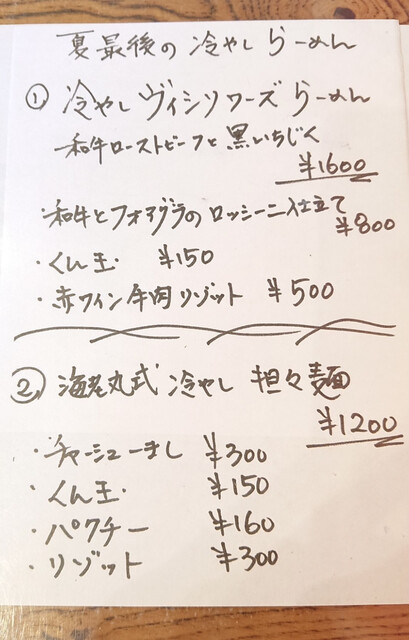 夏最後の冷やしらーめん
① 冷やし ヴィシソワーズ らーめん
和牛ローストビーフと黒いちじく
¥1600
・和牛とフォアグラのロッシーニ仕立て
¥800
・くん玉 ¥150
・赤ワイン牛肉リゾット ¥500
② 海老丸式 冷やし 担々麺
¥1200
・チャーシューまし ¥300
・くん玉 ¥150
・パクチー ¥160
・リゾット ¥300